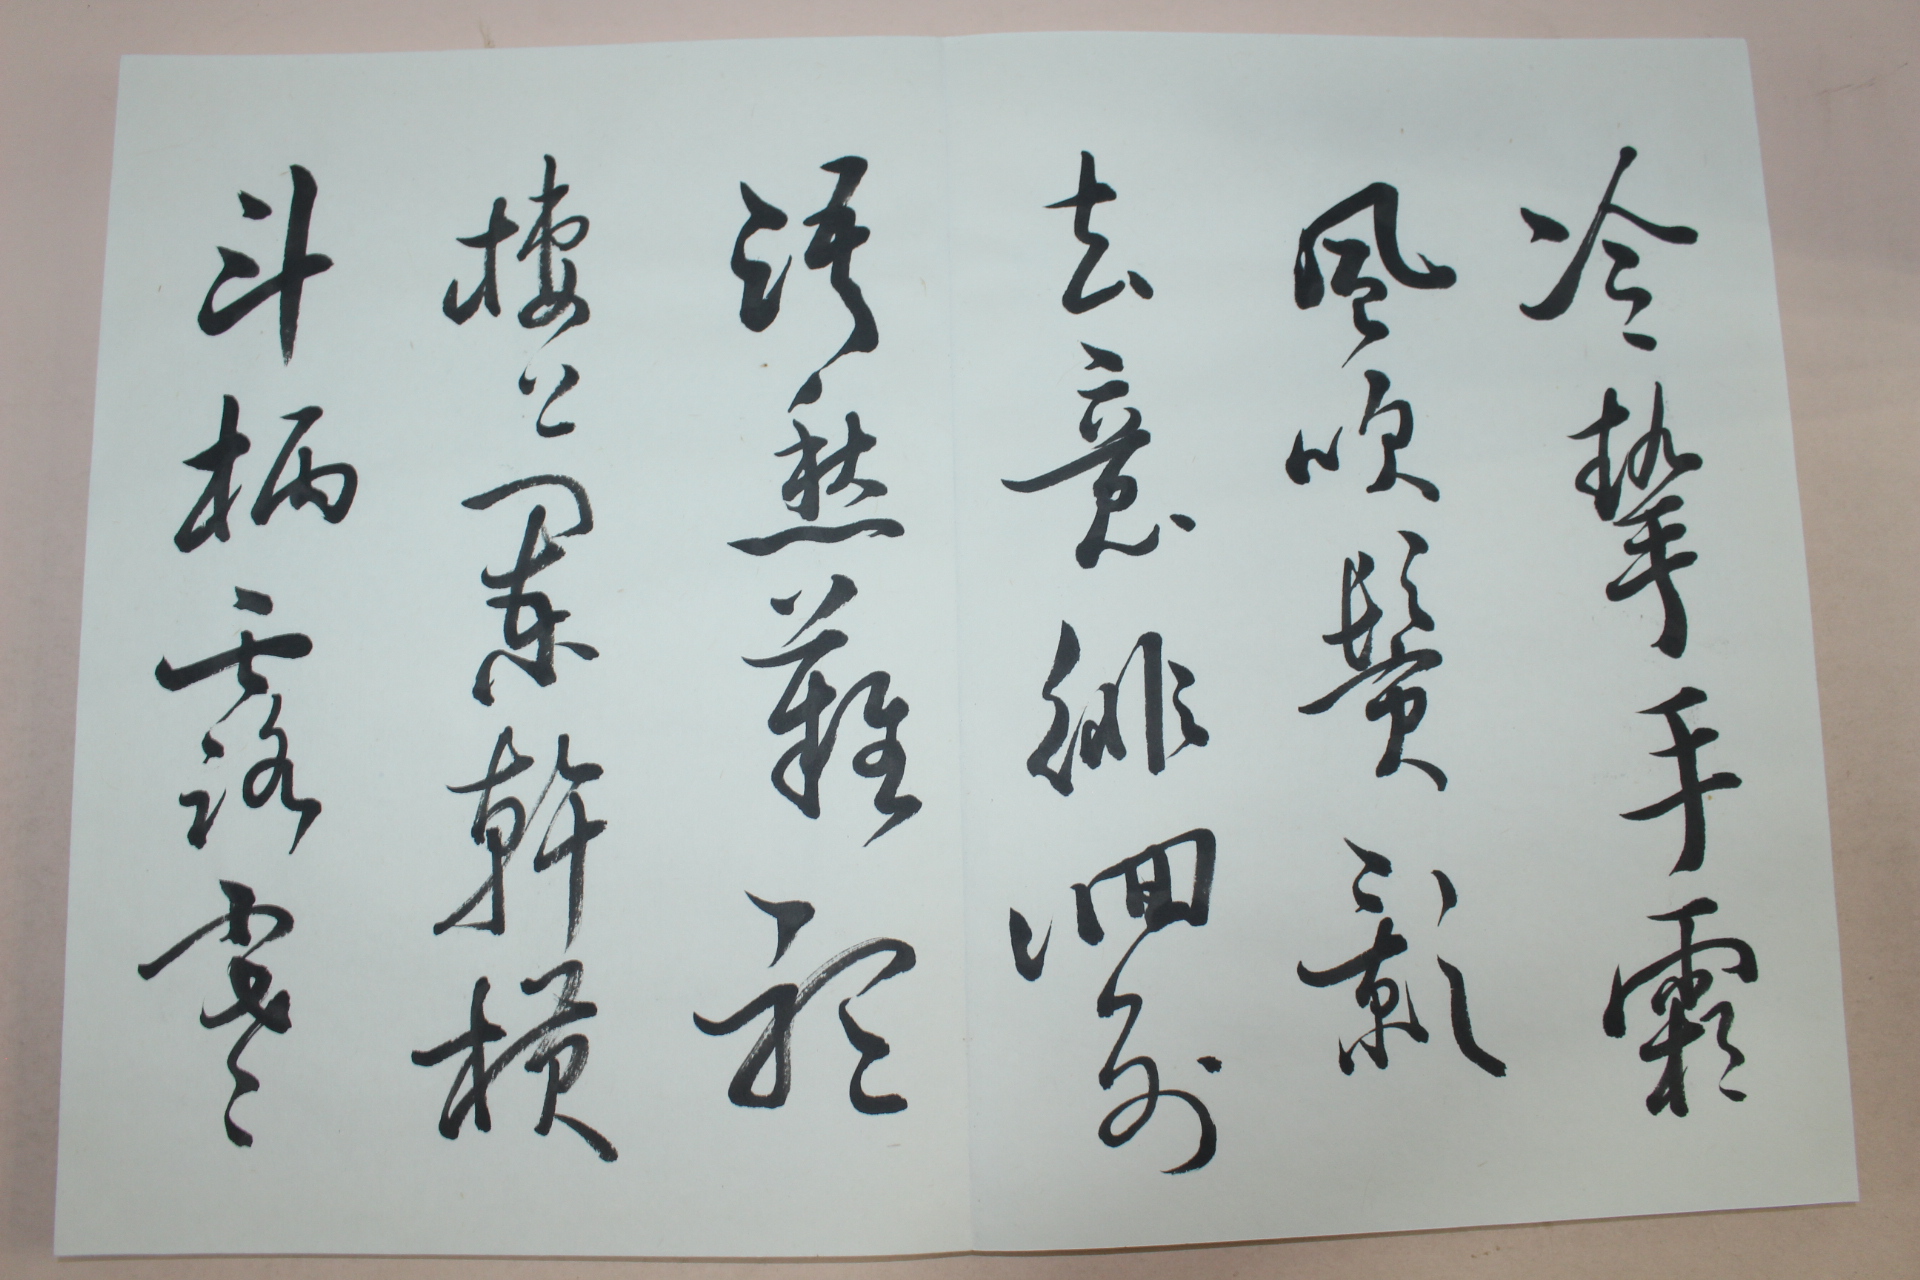 冷摯手霜
風吹鬢影
去意徘徊别
語愁難聽
樓上闌幹橫
斗柄露寒